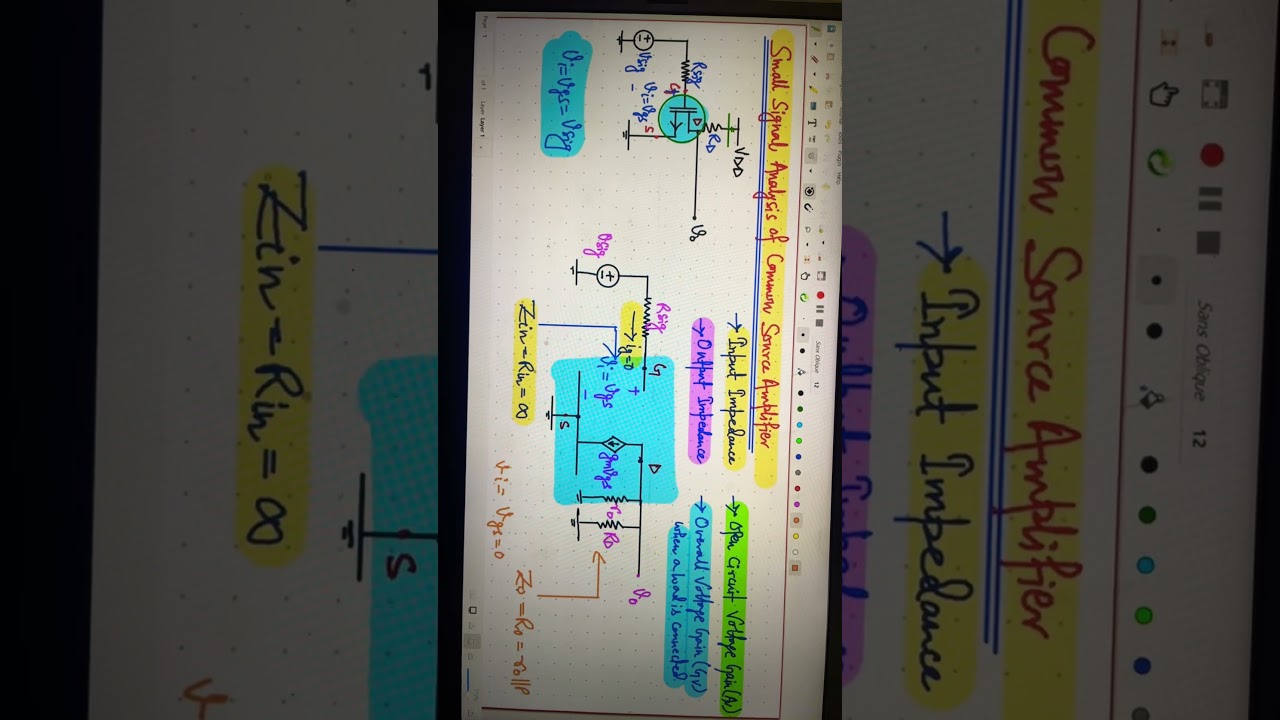 Small Signal Analysis of Common Source Amplifier
→ Input Impedance
→ Output Impedance
→ Open Circuit Voltage Gain (Av)
→ Overall Voltage Gain (Gv)
when a load is connected
VDD
RD
D
Rsig
G
S
Vsig
vi=vgs
vo
vi=vgs=vsig
Rsig
vsig
ig=0
G
+
vi=vgs
-
S
D
gmvgs
ro
RD
vo
Zin=Rin=∞
vi=vgs=0
Zo=Ro=ro||P
Page
of 1
Layer
Layer 1
Sans Oblique
12
Common Source Amplifier
→ Input Impedance
Sans Oblique
12
Zin=Rin=∞
S